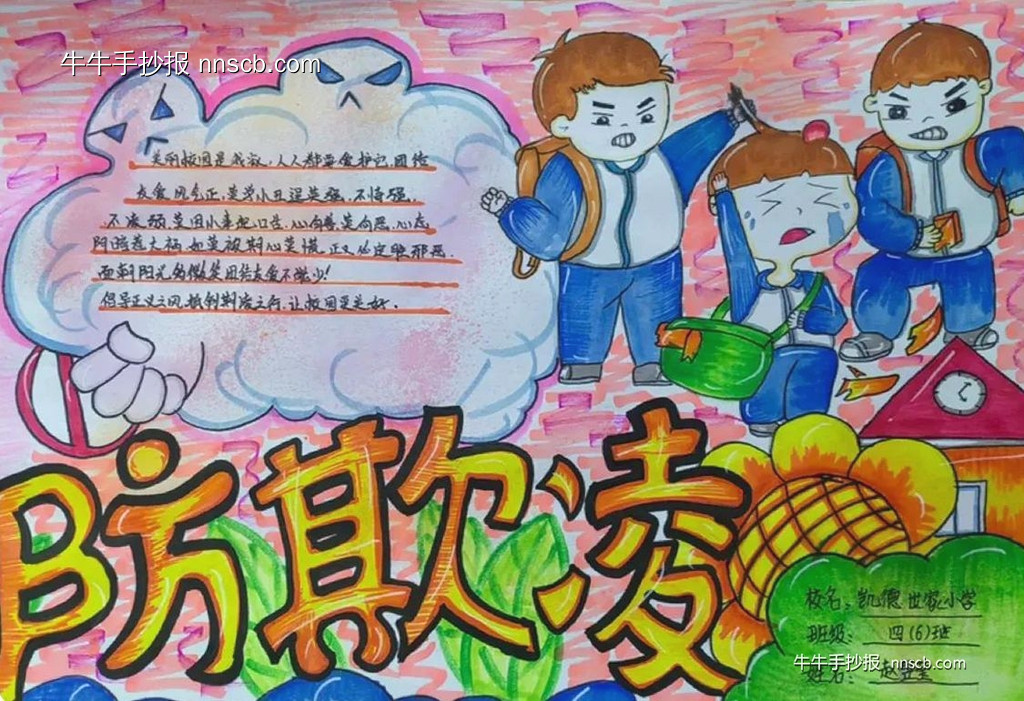 牛牛手抄报 nnscb.com
美丽校园是我家，人人都要爱护它，团结
友爱风气正，莫学小丑逞英强，不恃强，
不凌弱莫因小事起口告，心向善莫向恶，心态
阳暗惹大祸，如莫被欺心莫慌，正义必定胜邪恶，
面朝阳光多微笑团结友爱不能少！
倡导正义之风，抵制欺凌之行，让校园更美好．
防欺凌
校名：凯德世家小学
班级：四（6）班
牛牛手抄报 nnscb.com
姓名：赵